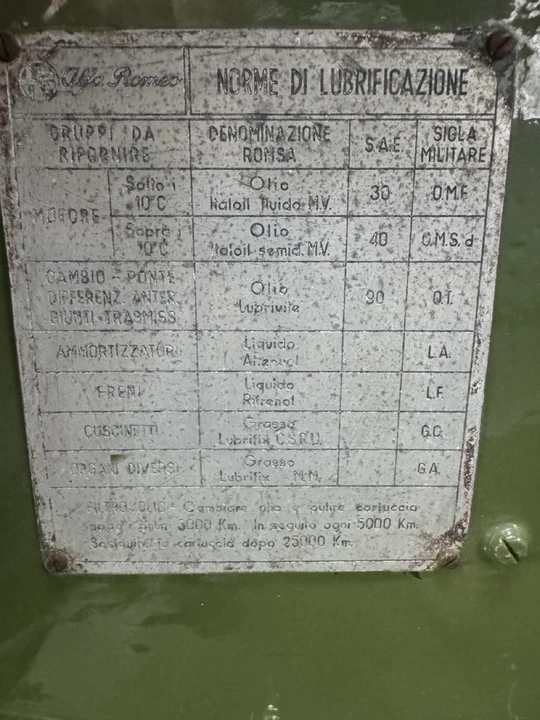 Alfa Romeo
NORME DI LUBRIFICAZIONE
GRUPPI DA
RIFORNIRE
DENOMINAZIONE
ROMSA
S.A.E.
SIGLA
MILITARE
MOTORE
Sotto i
10°C
Olio
Italoil fluido M.V.
30
O.M.F.
Sopra i
10°C
Olio
Italoil semid. M.V.
40
O.M.S.d
CAMBIO - PONTE
DIFFERENZ. ANTER.
GIUNTI-TRASMISS.
Olio
Lubrivite
90
O.T.
AMMORTIZZATORI
Liquido
L.A.
FRENI
Liquido
Rifrenol
L.F.
CUSCINETTI
Grasso
Lubrifix C.S.R.U.
G.C.
ORGANI DIVERSI
Grasso
Lubrifix M.M.
G.A.
FILTRO OLIO - Cambiare olio e pulire cartuccia
dopo primi 3000 Km. In seguito ogni 5000 Km.
Sostituire la cartuccia dopo 25000 Km.